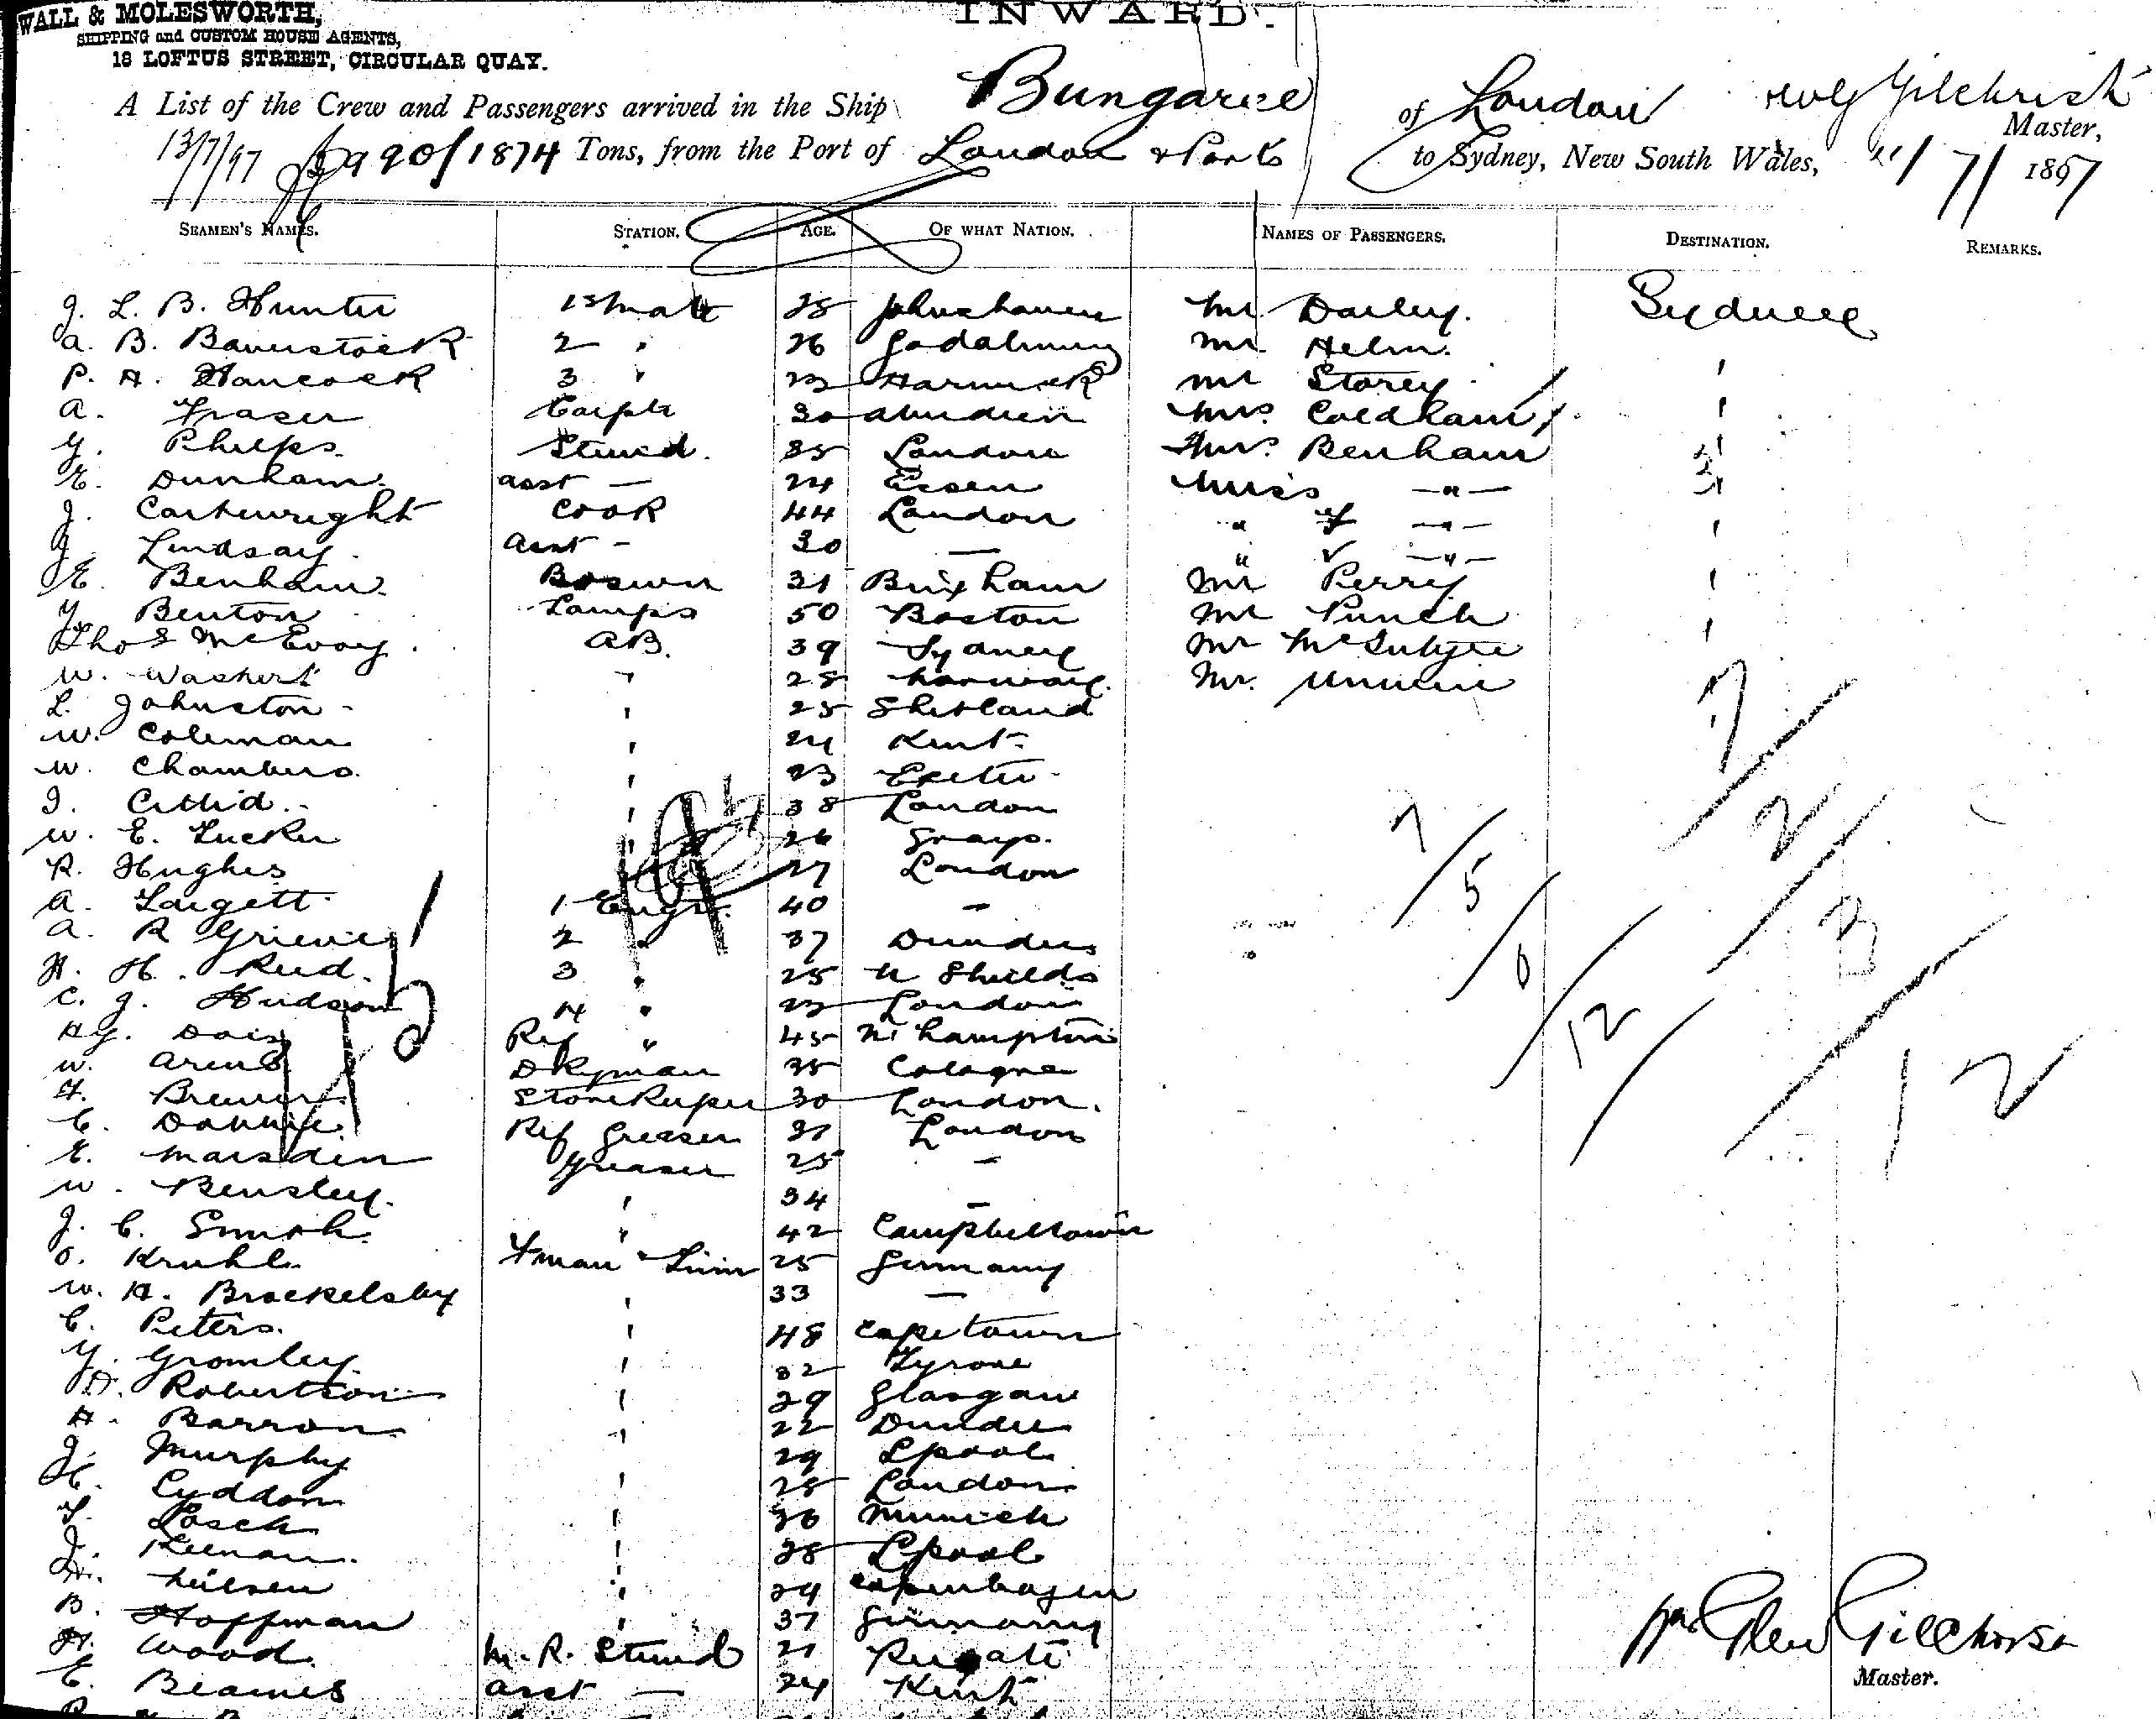 WALL & MOLESWORTH,
SHIPPING and CUSTOM HOUSE AGENTS,
18 LOFTUS STREET, CIRCULAR QUAY.
INWARD.
A List of the Crew and Passengers arrived in the Ship Bungaree of London Gilchrist Master,
13/7/97 1874 Tons, from the Port of London & Ports to Sydney, New South Wales, /7/1897
SEAMEN'S NAMES. STATION. AGE. OF WHAT NATION. NAMES OF PASSENGERS. DESTINATION. REMARKS.
J. L. B. Hunter 1st Mate 28 Johnshaven Mr. Darley. Sydney
A. B. Baverstock 2 " 26 Godalming Mr. Helm.
P. H. Hancock 3 " 23 Harwick Mr Storey "
A. Fraser Carptr 30 Aberdeen Mrs. Coldham "
G. Phelps. Steward. 35 London Mrs. Benham "
E. Dunham. asst — 24 Essex Miss —"— "
J. Cartwright Cook 44 London " —"— "
J. Lindsay. asst - 30 — " —"—
E. Benham. Boswn 31 Brixham Mr Perry "
Y. Benton Lamps 50 Boston Mr Punch "
Thos McEvoy AB. 39 Sydney Mr McIntyre "
W. " 28 Norway. Mr. Unwin
L. Johnston " 25 Shetland
W. Coleman " 24 Kent.
W. Chambers. " 23 Exeter
" 38 London
W. E. Tucker " 26 Grays.
R. Hughes " 27 London
A. Largett 1 Engr. 40 -
A. R Grieve 2 " 37 Dundee
H. H. Reid. 3 " 25 N Shields
C. J. Hudson 4 " 23 London
Hy. Ref " 45
W. Arens Dkyman 35 Cologne
H. Brewer Storekeeper 30 London.
C. Ref Greaser 31 London
E. Marsden Greaser 25 -
W. Bensley. " 34 -
J. C. Smith. " 42 Campbeltown
O. Kruhl Fman & Trim 25 Germany
W. H. Brockelsby " 33 —
C. Peters. " 48 Capetown
Y. Gromley. " 32 Tyrone
D. Robertson " 29 Glasgow
H. Barron " 22 Dundee
J. Murphy " 29 Lpool
H. Lyddon " 28 London
F. Losch " 36 Munich
J. Keenan. " 28 Lpool
H. Neilsen " 24 Copenhagen
B. Hoffman " 37 Germany
H. Wood. M. R. Steward 21 Reigate
E. Beames asst — 24 Kent
Master.
7
2
7
5
3
0
12
12